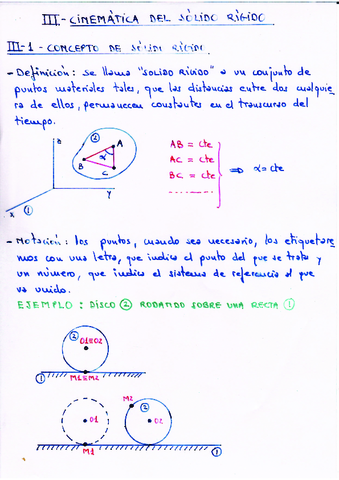 III - CINEMÁTICA DEL SÓLIDO RÍGIDO
III-1 - CONCEPTO DE SÓLIDO RÍGIDO.
- Definición: se llama "SOLIDO RIGIDO" a un conjunto de
puntos materiales tales, que las distancias entre dos cualquie
ra de ellos, permanecen constantes en el transcurso del
tiempo.
z
2
A
B
α
C
y
x
1
AB = cte
AC = cte
BC = cte
⇒ α = cte
- Notación: los puntos, cuando sea necesario, los etiquetare
mos con una letra, que indica el punto del que se trata y
un número, que indica el sistema de referencia al que
va unido.
EJEMPLO: DISCO 2 RODANDO SOBRE UNA RECTA 1
2
O1≡O2
1
M1≡M2
M2
2
O1
O2
M1
1